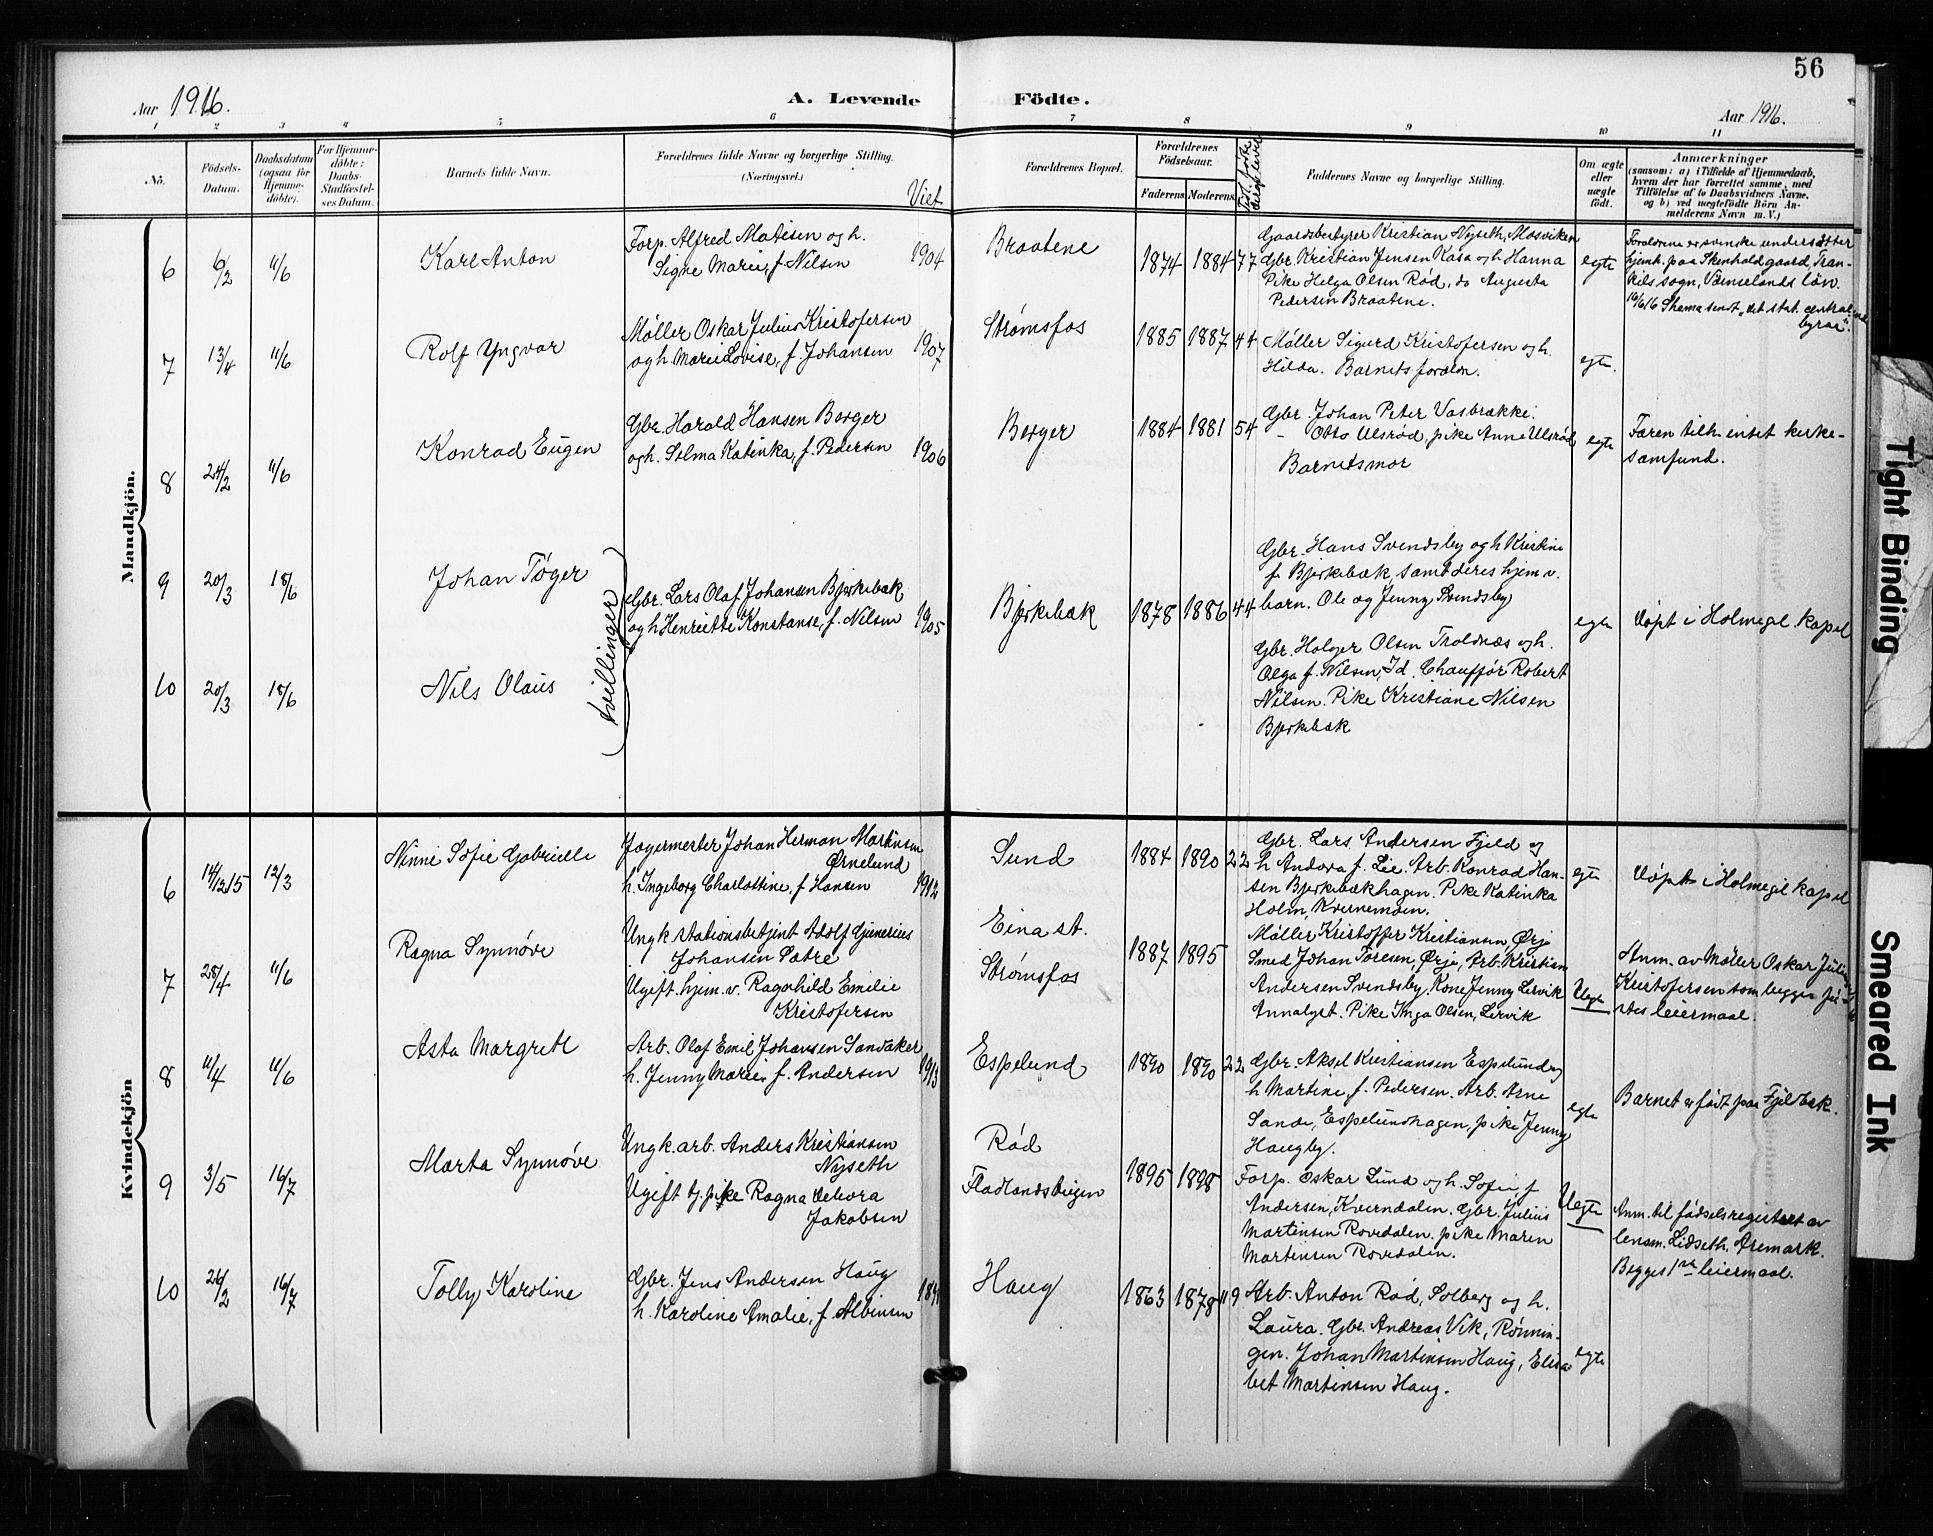 56
Aar 1916.
A. Levende Födte.
Aar 1916.
1 2 3 4 5 6 7 8 9 10 11
No.
Födsels-Datum.
Daabsdatum (ogsaa for Hjemme-döbte).
For Hjemme-döbte: Daabs-Stadfæstel-ses Datum.
Barnets fulde Navn.
Forældrenes fulde Navne og borgerlige Stilling.
(Næringsvei.)
Viet
Forældrenes Bopæl.
Forældrenes Födselsaar.
Faderens
Moderens
Faddernes Navne og borgerlige Stilling.
Om ægte eller uægte födt.
Anmærkninger
(saasom: a) i Tilfælde af Hjemmedaab,
hvem der har forrettet samme, med
Tilföielse af to Daabsvidners Navne,
og b) ved uægtefödte Börn An-
melderens Navn m. V.)
Mandkjön.
6
6/2
11/6
Karl Anton
Forp. Alfred Matisen og h.
Signe Marie, f. Nilsen
1904
Braatene
1874
1884
7 7
Gaardsbestyrer Kristian Nyseth, Mosviken
Gbr. Kristian Jensen Kasa og h Hanna
Pike Helga Olsen Rød, do Augusta
Pedersen Braatene.
egte
Forældrene er svenske undersåtter
hjemh. paa Skenhold gaard, Tran-
kils sogn, Værmelands län.
16/6 16 Skema sendt „det stat. central
byraa".
7
13/4
11/6
Rolf Yngvar
Møller Oskar Julius Kristofersen
og h. Marie Lovise, f. Johansen
1907
Strømsfos
1885
1887
4 4
Møller Sigurd Kristofersen og h.
Hilda. Barnets foræld.
egte.
8
24/2
11/6
Konrad Eugen
Gbr. Harald Hansen Berger
og h. Selma Katinka, f. Pedersen
1906
Berger
1884
1881
5 4
Gbr. Johan Peter Vasbrække.
- Otto Ulsrød, pike Anne Ulsrød
Barnets mor
egte
Faren tilh. intet kirke-
samfund.
9
20/3
18/6
Johan Tøger
tvillinger
Gbr. Lars Olaf Johansen Bjerkebæk
og h Henriette Konstanse, f. Nilsen
1905
Bjerkebæk
1878
1886
4 4
Gbr. Hans Svendsby og h Kristine
f. Bjerkebæk, samt deres hjem v.
barn. Ole og Jenny Svendsby
egte
Døpt i Holmegil kapel
10
20/3
18/6
Nils Olaus
Gbr. Holger Olsen Troldnæs og h.
Olga f. Nilsen, Id. Chauffør Robert
Nilsen. Pike Kristiane Nilsen
Bjerkebæk
Kvindekjön
6
14/12 15
12/3
Ninni Sofie Gabrielle
Jagermester Johan Herman Martinsen
Ørnelund
h. Ingeborg Charlottine, f Hansen
1912
Sund
1884
1890
2 2
Gbr. Lars Andersen Fjeld og
h Andora f. Lie. Arb. Konrad Han-
sen Bjerkebækhagen. Pike Katinka
Holm, Kvernemoen.
egte
Døpt i Holmegil kapel
7
28/4
11/6
Ragna Synnøve
Ungk stationsbetjent Adolf Gunerius
Johansen Sætre
Ugift hjem. v. Ragnhild Emilie
Kristofersen
Eina st.
Strømsfos
1887
1895
Møller Kristoffer Kristiansen, Ørje
Smed Johan Toresen, Ørje, Arb. Kristian
Andersen Svendsby. Kone Jenny Lervik
Annalyst. Pike Inga Olsen, Lervik
Uegte
Anm. av Møller Oskar Julius
Kristofersen som begges før-
stes leiermaal.
8
11/4
11/6
Asta Margrete
Arb. Olaf Emil Johansen Sandaker
h. Jenny Marie f. Andersen
1913
Espelund
1890
1890
2 2
Gbr. Aksel Kristiansen Espelund og
h Martine, f. Pedersen. Arb. Arne
Sande, Espelundhagen, pike Jenny
Haugby.
egte
Barnet er født paa Fjeldbæk.
9
3/5
16/7
Marta Synnøve
Ungk. arb. Anders Kristiansen
Nyseth
Ugift tj. pike Ragna Debora
Jakobsen
Rød
Fladlandsstugen
1895
1898
Forp. Oskar Lund og h. Sofie f
Andersen, Kverndalen. Gbr. Julius
Martinsen Rovedalen. pike Maren
Martinsen Rovedalen.
Uegte
Anm. til fødselsregisteret av
lensm. Lidseth, Aremark.
Begges 1ste leiermaal.
10
26/2
16/7
Tolly Karoline
Gbr. Jens Andersen Haug
h. Karoline Amalie, f Albinsen
Haug
1863
1878
11 9
Arb. Anton Rød, Solberg og h.
Laura. Gbr. Andreas Vik, Rønnin-
gen. Johan Martinsen Haug, Elisa
bet Martinsen Haug.
egte
Tight Binding
Smeared Ink